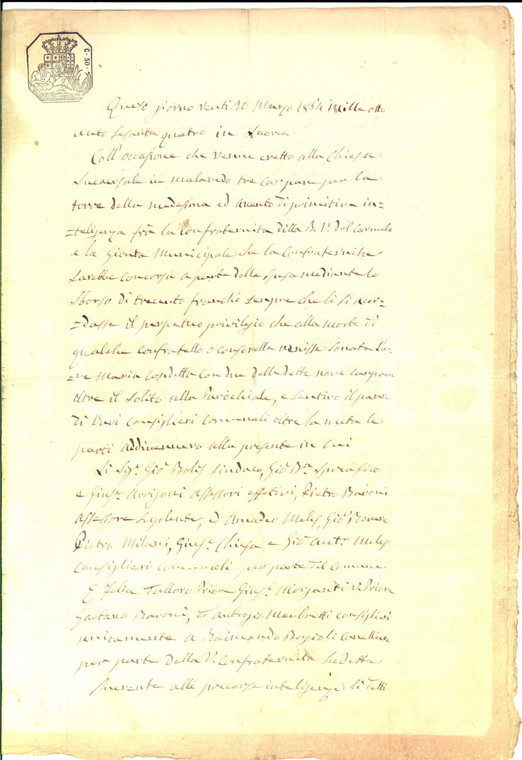 C. 50.
Questo giorno venti 20 Marzo 1864 Mille otto
cento sessanta quatro in
Coll'occasione che venne eretto alla Chiesa
Sucursale in tre campane per la
torre della medesima ed avuto di primitiva in=
=teligenza frà la Confraternita della B. V. del Carmelo
e la Gionta Municipale che la Confraternita
sarebbe concorsa a parte della spesa mediante lo
sborso di trecento franchi sempre che li si acor=
=dasse il perpetuo privilegio che alla morte di
qualche confratello o consorella venisse sonata l'a=
=ve Maria con due delle dette nove campane
oltre il solito alla Parochiale, e sentivo il parere
di Consiglieri Comunali oltre la metà le
parti addivennero alla presente in cui
Li Sigri Gio Bolis Sindaco, Gio Bta Spreafico
e Giuse Arrigoni assessori effetivi, Pietro Baroni
assessore suplente, ed Amadeo Gio
Pietro Milani, Giuse Chiesa, e Gio Anto
Consiglieri comunali per parte del Comune
E Priore Giuse Morganti V. Priore
Gaetano Baroni, ed Ambrogio consiglieri
unitamente a Raimondo
per parte della V. Confraternita sudetta
Inerente alle precorse inteligenze li detti